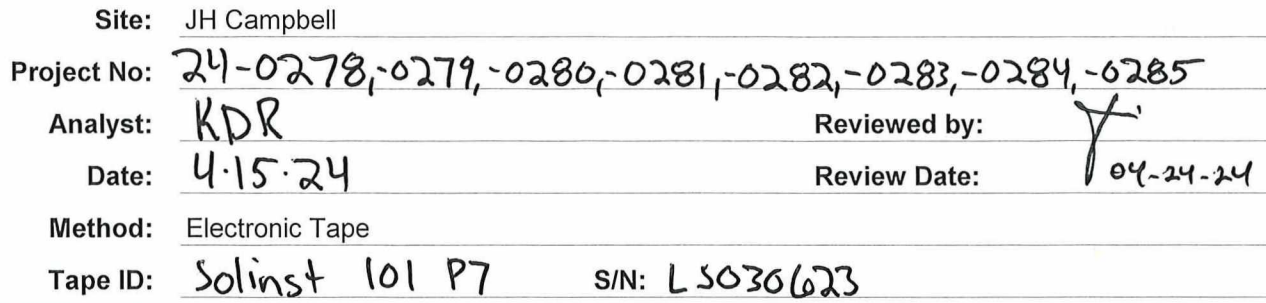 Site: JH Campbell
Project No: 24-0278,-0279,-0280,-0281,-0282,-0283,-0284,-0285
Analyst: KDR Reviewed by:
Date: 4.15.24 Review Date: 04-24-24
Method: Electronic Tape
Tape ID: Solinst 101 P7 S/N: LS030623